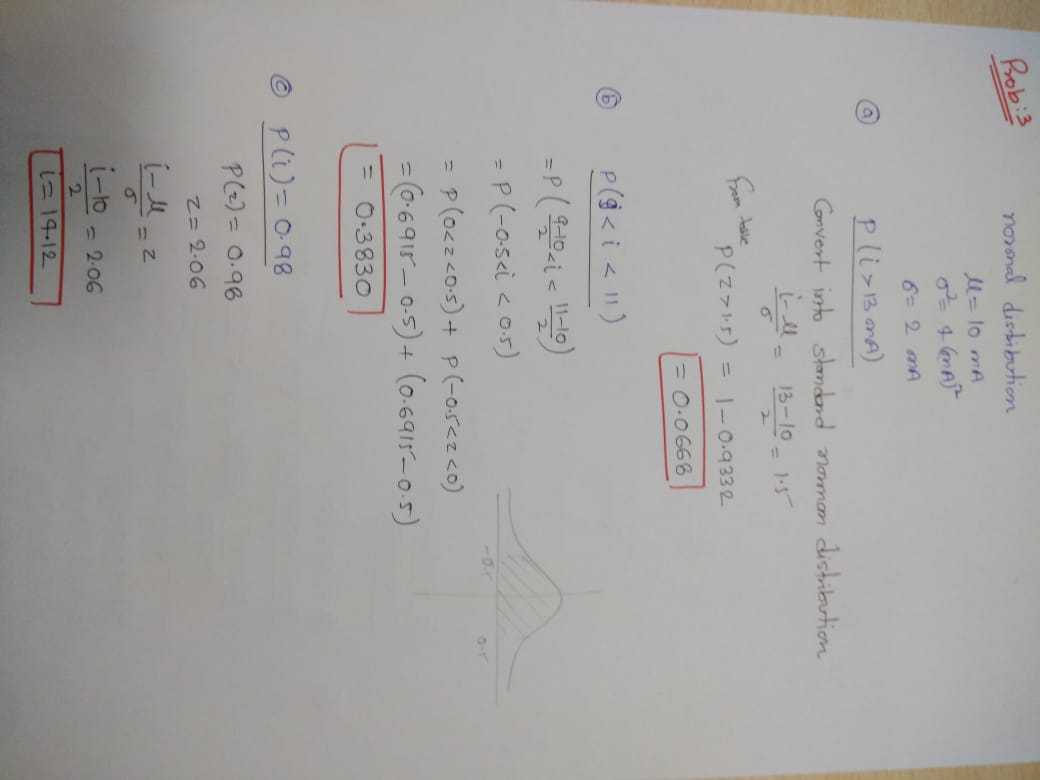 Prob:3
normal distribution
μ = 10 mA
σ² = 4 (mA)²
σ = 2 mA
(a) P(i > 13 mA)
Convert into standard norman distribution
i-μ/σ = 13-10/2 = 1.5
from table
P(z > 1.5) = 1 - 0.9332
= 0.0668
(b) P(9 < i < 11)
= P(9-10/2 < i < 11-10/2)
= P(-0.5 < i < 0.5)
= P(0 < z < 0.5) + P(-0.5 < z < 0)
= (0.6915 - 0.5) + (0.6915 - 0.5)
= 0.3830
-0.5 0.5
(c) P(i) = 0.98
P(z) = 0.98
z = 2.06
i-μ/σ = z
i-10/2 = 2.06
i = 14.12